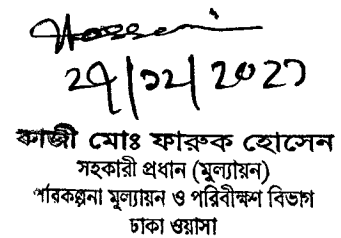 Hossein
কাজী মোঃ ফারুক হোসেন
সহকারী প্রধান (মূল্যায়ন)
পরিকল্পনা মূল্যায়ন ও পরিবীক্ষণ বিভাগ
ঢাকা ওয়াসা